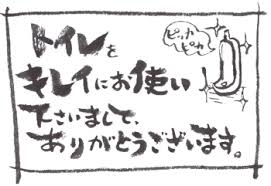 トイレを
キレイにお使い
下さいまして、
ありがとうございます。
ピッカ
ピカ